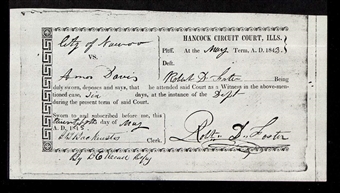 HANCOCK CIRCUIT COURT, ILLS.
City of Nauvoo
Pltff. At the May Term, A. D. 1843.
VS.
Deft.
Amos Davis Robert D. Foster Being
duly sworn, deposes and says, that he attended said Court as a Witness in the above-men-
tioned case six days, at the instance of the Deft
during the present term of said Court.
Sworn to and subscribed before me, this
day of May
A. D. 184
Clerk. Robt. D. Foster
By Depty